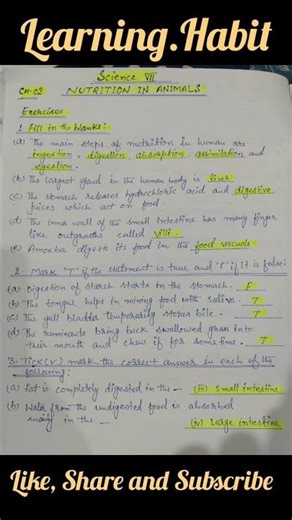 Learning.Habit
Science VII
CH-02 NUTRITION IN ANIMALS
Exercises
1 Fill in the blanks:
(a) The main steps of nutrition in human are
ingestion, digestion, absorption, assimilation and
egestion.
(b) The largest gland in the human body is liver
(c) The stomach releases hydrochloric acid and digestive
juices which act on food.
(d) The inner wall of the small intestine has many finger
like outgrowths called villi.
(e) Amoeba digests its food in the food vacuole
2. Mark 'T' if the statement is true and 'F' if it is false:
(a) Digestion of starch starts in the stomach. F
(b) The tongue helps in mixing food with saliva. T
(c) The gall bladder temporarily stores bile. T
(d) The ruminants bring back swallowed grass into
their mouth and chew it for some time. T
3. Tick(√) mark the correct answer in each of the
following:
(a) Fat is completely digested in the - (iii) Small intestine
(b) Water from the undigested food is absorbed
mainly in the - (iv) Large intestine
Like, Share and Subscribe